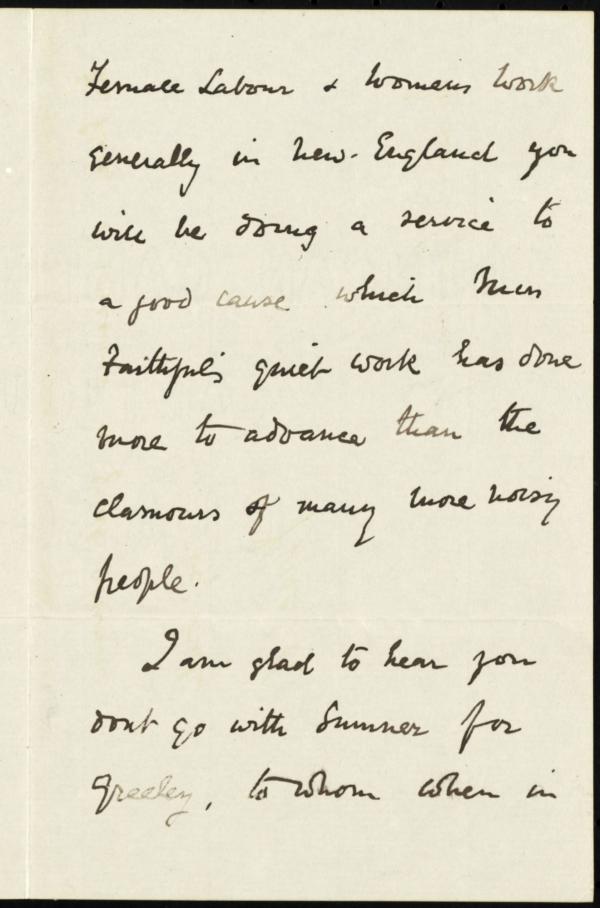 Female Labour & Womens Work
generally in New-England you
will be doing a service to
a good cause which Miss
Faithful's quiet work has done
more to advance than the
clamours of many more noisy
people.
I am glad to hear you
dont go with Sumner for
Greeley, to whom when in